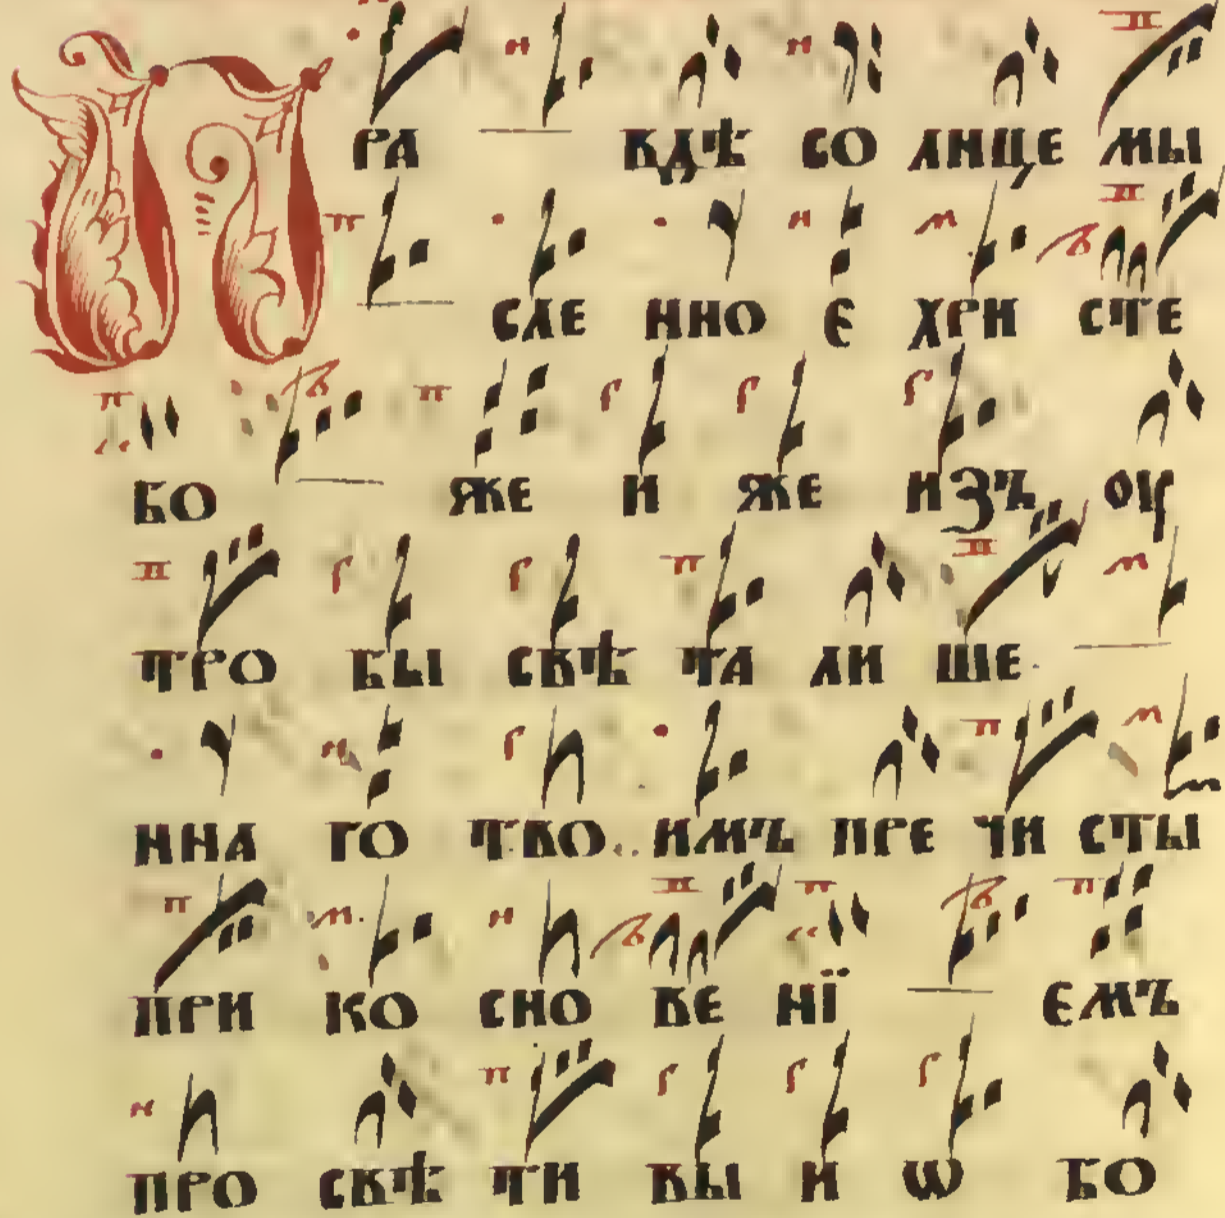 П РА ВДѢ СО ЛНЦЕ МЫ
СЛЕ ННО Е ХРИ СТЕ
БО ЖЕ И ЖЕ ИЗЪ ОУ
ТРО БЫ СВѢ ТА ЛИ ШЕ
ННА ГО ТВО ИМЪ ПРЕ ЧИ СТЫ
ПРИ КО СНО ВЕ НЇ ЕМЪ
ПРО СВѢ ТИ ВЫ И Ѡ БО